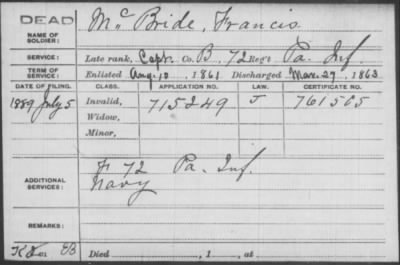 DEAD
NAME OF SOLDIER: McBride, Francis
SERVICE: Late rank, Capt. Co. B, 72 Reg't Pa. Inf.
TERM OF SERVICE: Enlisted Aug. 10, 1861 Discharged Mar. 27, 1863
DATE OF FILING. CLASS. APPLICATION NO. LAW. CERTIFICATE NO.
1889 July 5 Invalid, 715249 J 761505
Widow,
Minor,
ADDITIONAL SERVICES: F 72 Pa. Inf.
Navy
REMARKS:
Died , 1 , at